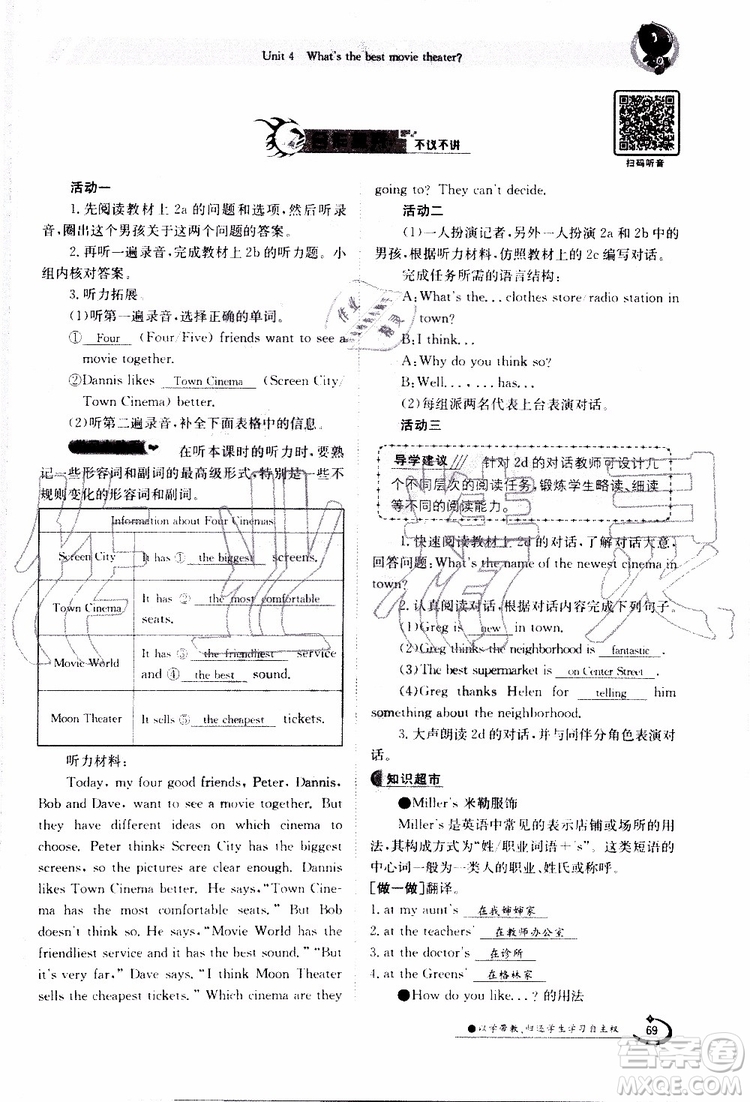 Unit 4 What's the best movie theater?
不议不讲
扫码听音
活动一
1. 先阅读教材上 2a 的问题和选项,然后听录
音,圈出这个男孩关于这两个问题的答案。
2. 再听一遍录音,完成教材上 2b 的听力题。小
组内核对答案。
3. 听力拓展。
(1)听第一遍录音,选择正确的单词。
① Four (Four/Five) friends want to see a
movie together.
②Dannis likes Town Cinema (Screen City/
Town Cinema) better.
(2)听第二遍录音,补全下面表格中的信息。
在听本课时的听力时,要熟
记一些形容词和副词的最高级形式,特别是一些不
规则变化的形容词和副词。
Information about Four Cinemas
Screen City It has ① the biggest screens.
Town Cinema It has ② the most comfortable
seats.
Movie World It has ③ the friendliest service
and ④ the best sound.
Moon Theater It sells ⑤ the cheapest tickets.
听力材料:
Today, my four good friends, Peter, Dannis,
Bob and Dave, want to see a movie together. But
they have different ideas on which cinema to
choose. Peter thinks Screen City has the biggest
screens, so the pictures are clear enough. Dannis
likes Town Cinema better. He says,"Town Cine-
ma has the most comfortable seats." But Bob
doesn't think so. He says, "Movie World has the
friendliest service and the best sound." "But
it's very far," Dave says. "I think Moon Theater
sells the cheapest tickets." Which cinema are they
going to? They can't decide.
活动二
(1)一人扮演记者,另外一人扮演 2a 和 2b 中的
男孩,根据听力材料,仿照教材上的 2c 编写对话。
完成任务所需的语言结构:
A:What's the. . . clothes store/radio station in
town?
B:I think. . .
A:Why do you think so?
B:Well. . . , . . . has. . .
(2)每组派两名代表上台表演对话。
活动三
导学建议 针对 2d 的对话教师可设计几
个不同层次的阅读任务,锻炼学生略读、细读
等不同的阅读能力。
1. 快速阅读教材上 2d 的对话,了解对话大意,
回答问题:What's the name of the newest cinema in
town?
2. 认真阅读对话,根据对话内容完成下列句子。
(1)Greg is new in town.
(2)Greg thinks the neighborhood is fantastic .
(3)The best supermarket is on Center Street .
(4)Greg thanks Helen for telling him
something about the neighborhood.
3. 大声朗读 2d 的对话,并与同伴分角色表演对
话。
知识超市
●Miller's 米勒服饰
Miller's 是英语中常见的表示店铺或场所的用
法,其构成方式为“姓/职业词语+'s”。这类短语的
中心词一般为一类人的职业、姓氏或称呼。
[做一做]翻译。
1. at my aunt's 在我婶婶家
2. at the teachers' 在教师办公室
3. at the doctor's 在诊所
4. at the Greens' 在格林家
●How do you like. . . ? 的用法
●以学带教,归还学生学习自主权
69
答案圈
MXQE.COM